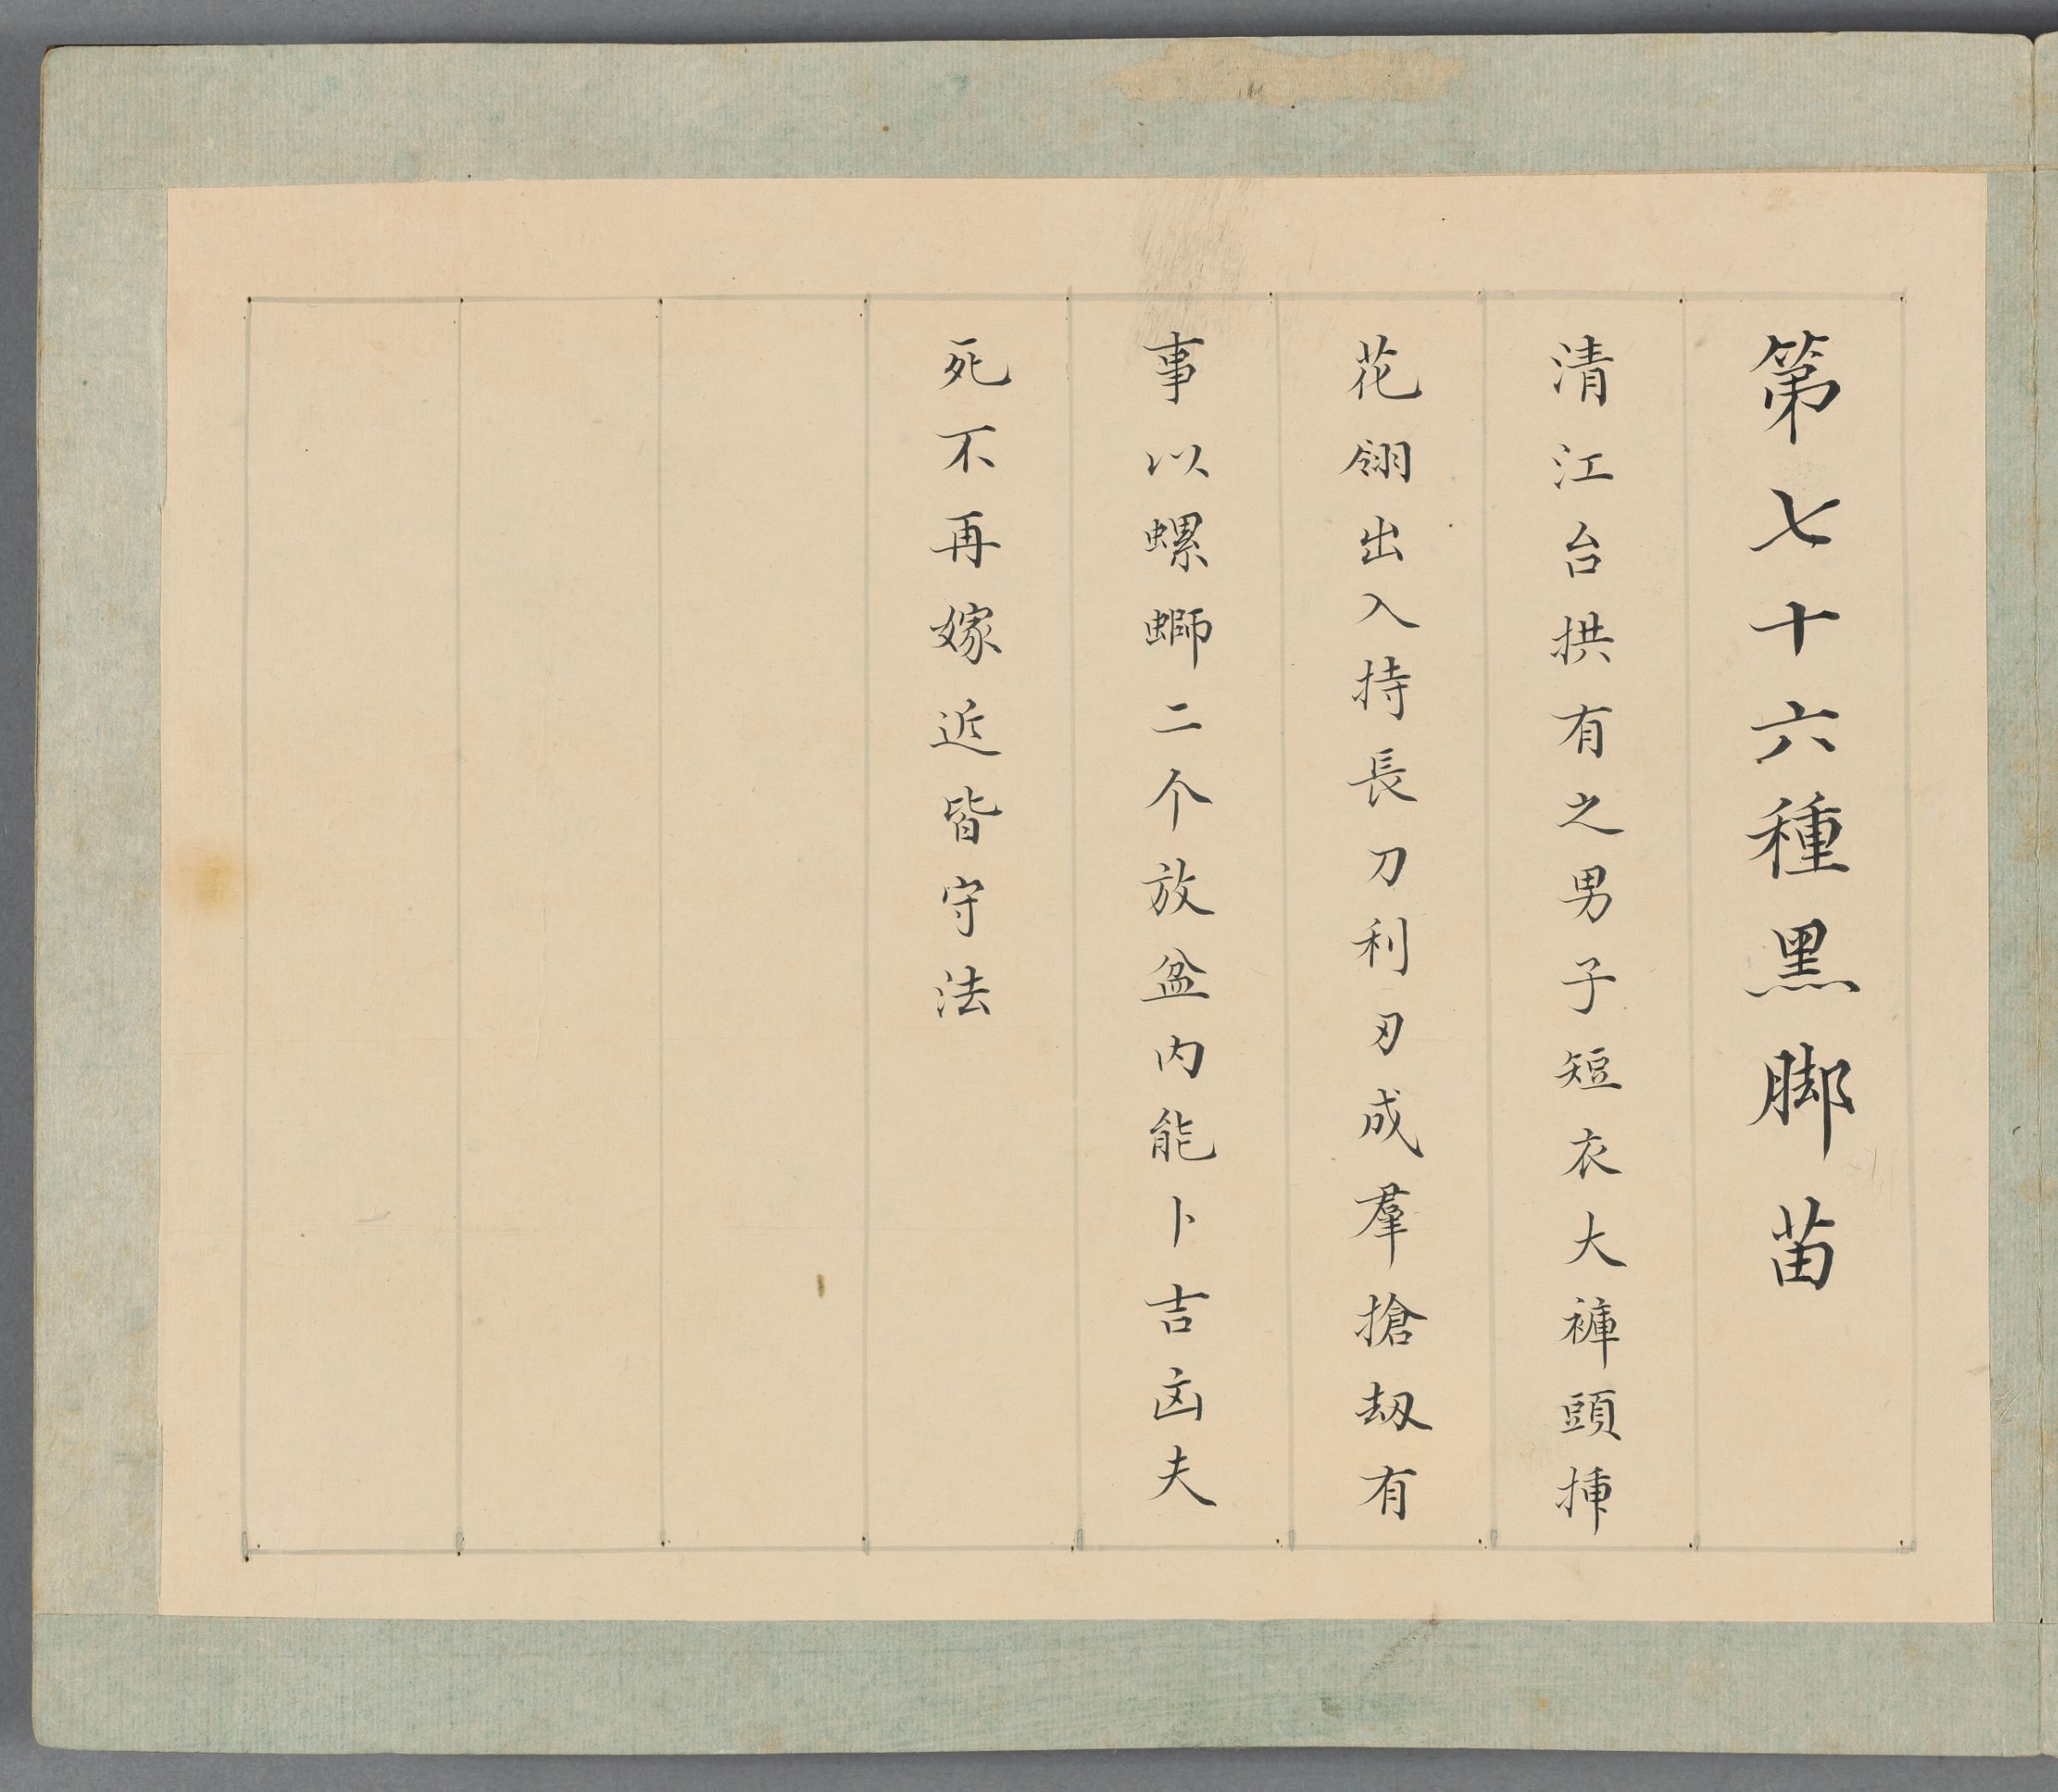 第七十六種黑脚苗
清江台拱有之男子短衣大褲頭揷
花翎出入持長刀利刃成羣搶刼有
事以螺螄二个放盆内能卜吉㐫夫
死不再嫁近皆守法